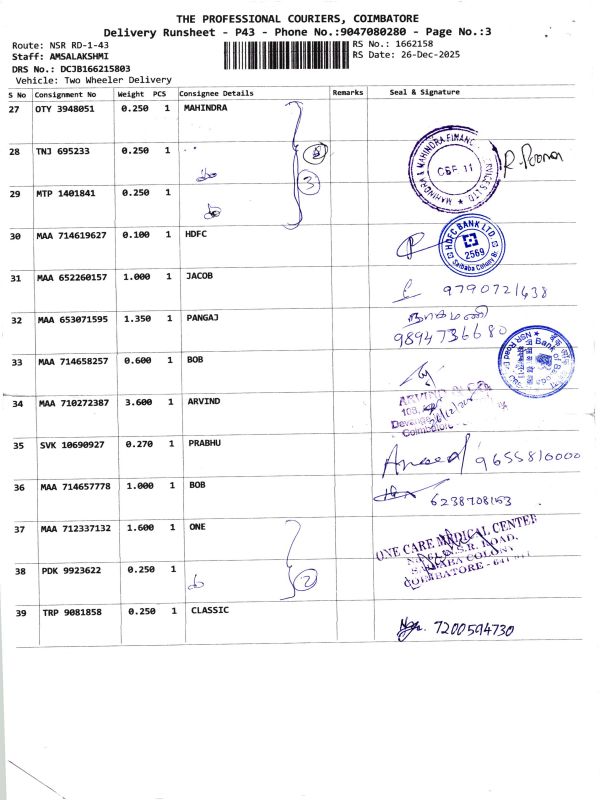 THE PROFESSIONAL COURIERS, COIMBATORE
Delivery Runsheet - P43 - Phone No.:9047080280 - Page No.:3
Route: NSR RD-1-43
RS No.: 1662158
Staff: AMSALAKSHMI
RS Date: 26-Dec-2025
DRS No.: DCJB166215803
Vehicle: Two Wheeler Delivery
S No Consignment No Weight PCS Consignee Details Remarks Seal & Signature
27 OTY 3948051 0.250 1 MAHINDRA
28 TNJ 695233 0.250 1
3
MAHINDRA & MAHINDRA FINANC
R. Poorna
29 MTP 1401841 0.250 1
30 MAA 714619627 0.100 1 HDFC
HDFC BANK LTD.
2569
Saibaba Colony Br
31 MAA 652260157 1.000 1 JACOB
9790721638
32 MAA 653071595 1.350 1 PANGAJ
நாகமணி
9894736680
33 MAA 714658257 0.600 1 BOB
NSR Road
Bank of
34 MAA 710272387 3.600 1 ARVIND
ARVIND
Coimbatore
35 SVK 10690927 0.270 1 PRABHU
9655810000
36 MAA 714657778 1.000 1 BOB
6238708153
37 MAA 712337132 1.600 1 ONE
ONE CARE MEDICAL CENTER
N.S.R. ROAD,
SAIBABA COLONY
COIMBATORE - 641
38 PDK 9923622 0.250 1
2
39 TRP 9081858 0.250 1 CLASSIC
7200594730